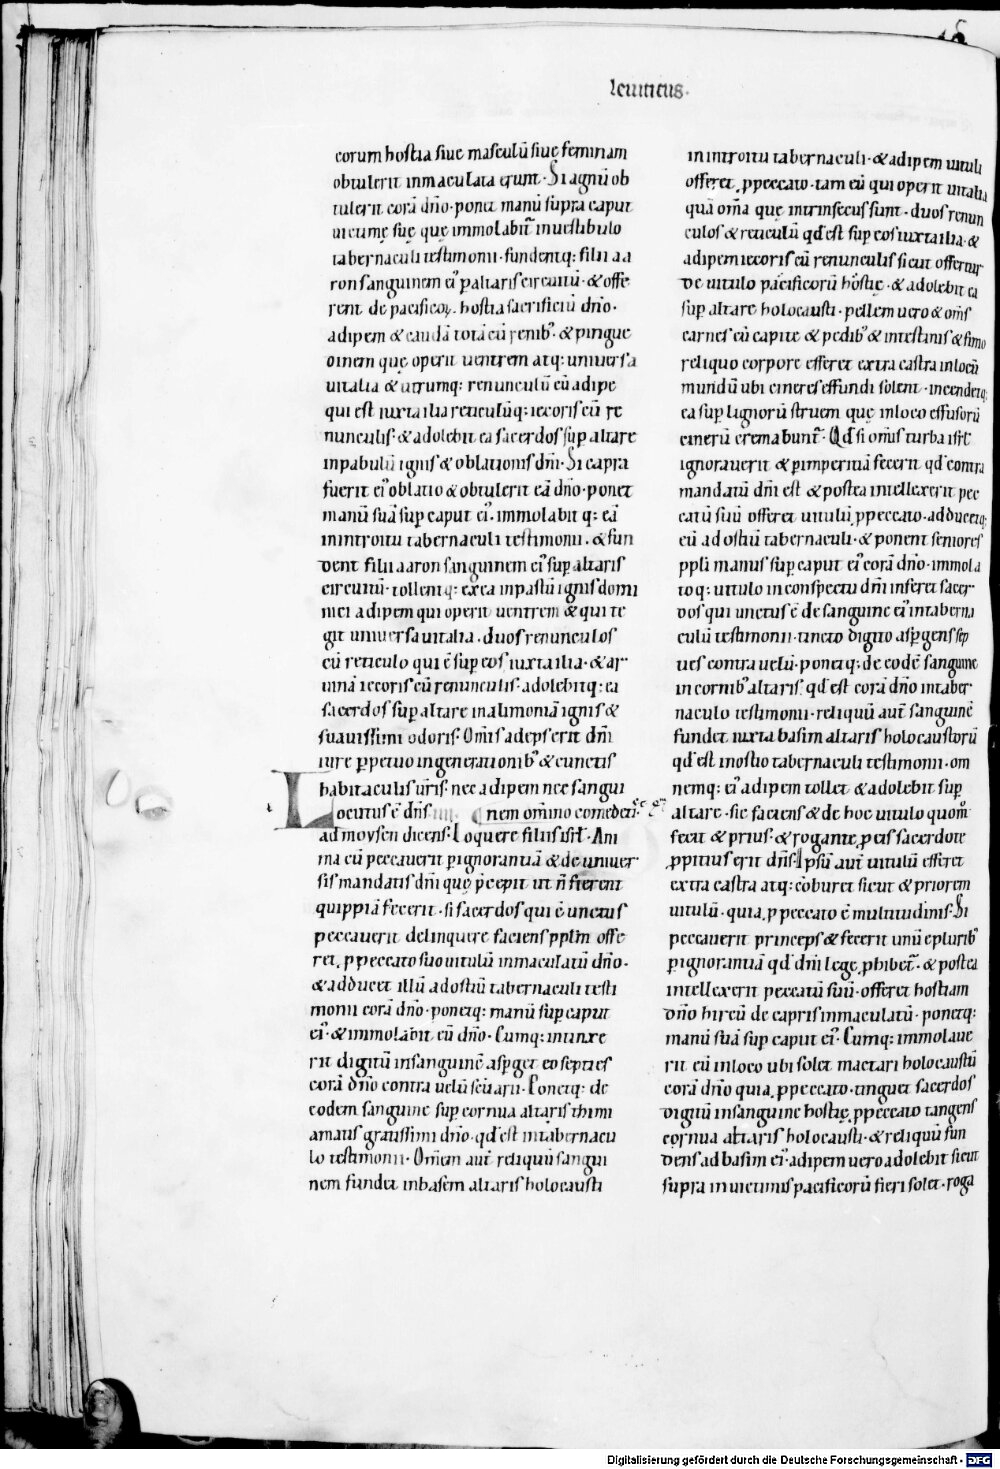 leuiticus.
eorum hostia siue masculū siue feminam
obtulerit inmaculata erunt. Si agnū ob
tulerit corā dno. ponet manū supra caput
uictimę suę quę immolabit̄ inuestibulo
tabernaculi testimonii. fundentq; filii aa
ron sanguinem ei' p altaris circuitū. & offe
rent de pacificoꝝ. hostia sacrificiū dno.
adipem & caudā totā cū renib'. & pingue
dinem quę operit uentrem atq; uniuersa
uitalia & utrumq; renunculū cū adipe
qui est iuxta ilia reticulūq; iecoris cū re
nunculis. & adolebit ea sacerdos sup altare
inpabulū ignis & oblationis dni. Si capra
fuerit ei' oblatio & obtulerit eā dno. ponet
manū suā sup caput ei'. immolabit q; eā
inintroitu tabernaculi testimonii. & fun
dent filii aaron sanguinem ei' sup altaris
circuitū. tollentq; ex ea inpastū ignis domi
nici adipem qui operit uentrem & qui te
git uniuersa uitalia. duos renunculos
cū reticulo qui ē sup eos iuxta ilia. & ar
uinā iecoris cū renunculis. adolebitq; ea
sacerdos sup altare in alimoniā ignis &
suauissimi odoris. Om̄is adeps erit dn̄i
iure ppetuo ingenerationib' & cunctis
habitaculis uris. nec adipem nec sangui
Locutus ē dn̄s nem omino comedetis
ad moysen dicens. Loquere filiis isrl. Ani
ma cū peccauerit pignorantiā & de uniuer
sis mandatis dn̄i quę pcepit ut n̄ fierent
quippiā fecerit. si sacerdos qui ē unctus
peccauerit delinquere faciens pplm offe
ret ppeccato suo uitulū inmaculatū dn̄o.
& adducet illū adostiū tabernaculi testi
monii corā dn̄o. ponetq; manū sup caput
ei'. & immolabit eū dn̄o. Cumq; intinxe
rit digitū insanguinē asperget eo septies
corā dn̄o contra uelū sc̄uarii. Ponetq; de
eodem sanguine sup cornua altaris thimi
amatis gratissimi dn̄o. qd est intabernacu
lo testimonii. Om̄em aut̄ reliquū sangui
nem fundet inbasem altaris holocausti
inintroitu tabernaculi. & adipem uituli
offeret ppeccato. tam eū qui operit uitalia
quā om̄a quę intrinsecus sunt. duos renun
culos & reticulū qd est sup eos iuxta ilia. &
adipem iecoris cū renunculis sicut offertur
de uitulo pacificorū hostię. & adolebit ea
sup altare holocausti. pellem uero & om̄s
carnes cū capite & pedib' & intestinis & fimo
reliquo corpore efferet extra castra inlocū
mundū ubi cineres effundi solent. incendetq;
ea sup lignorū struem quę inloco effusorū
cinerū cremabunt̄. Qd si om̄is turba isrl
ignorauerit & pimperitiā fecerit qd contra
mandatū dn̄i est & postea intellexerit pec
catū suū offeret uitulū ppeccato. adducetq;
eū adostiū tabernaculi. & ponent seniores
ppli manus sup caput ei' corā dn̄o. immola
toq; uitulo inconspectu dn̄i inferet sacer
dos qui unctus ē de sanguine ei' intaberna
culū testimonii. tincto digito aspgens sep
ties contra uelū. ponetq; de eodē sanguine
in cornib' altaris. qd est corā dn̄o intaber
naculo testimonii. reliquū aut̄ sanguinē
fundet iuxta basim altaris holocaustorū
qd est inostio tabernaculi testimonii. om
nemq; ei' adipem tollet & adolebit sup
altare. sic faciens & de hoc uitulo quom̊
fecit & prius. & rogante p eis sacerdote
ppitius erit dn̄s. Ipsū aut̄ uitulū efferet
extra castra atq; cōburet sicut & priorem
uitulū. quia p peccato ē multitudinis. Si
peccauerit princeps & fecerit unū eplurib'
pignorantiā qd dn̄i lege phibet̄. & postea
intellexerit peccatū suū. offeret hostiam
dn̄o hircū de capris inmaculatū. ponetq;
manū suā sup caput ei'. Cumq; immolaue
rit eū inloco ubi solet mactari holocaustū
corā dn̄o quia ppeccato. tinguet sacerdos
digitū insanguine hostię ppeccato tangens
cornua altaris holocausti. & reliquū fun
dens ad basim ei'. adipem uero adolebit sicut
supra in uictimis pacificorū fieri solet. roga
Digitalisierung gefördert durch die Deutsche Forschungsgemeinschaft - DFG